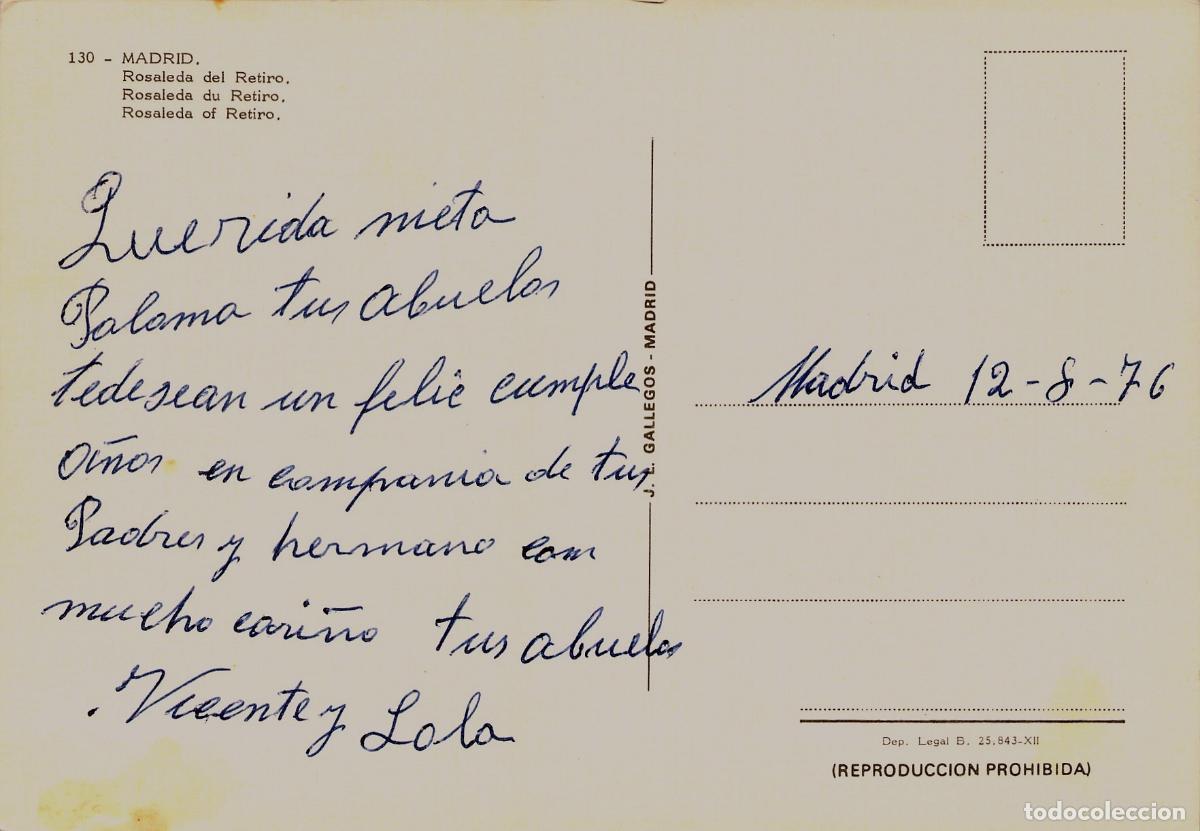 130 - MADRID.
Rosaleda del Retiro.
Rosaleda du Retiro.
Rosaleda of Retiro.
Querida nieta
Paloma tus abuelos
tedesean un felic cumple
años en compania de tus
Padres y hermano com
mucho cariño tus abuelos
Vicente y Lola
J. L. GALLEGOS - MADRID
Madrid 12-8-76
Dep. Legal B. 25.843-XII
(REPRODUCCION PROHIBIDA)
todocoleccion